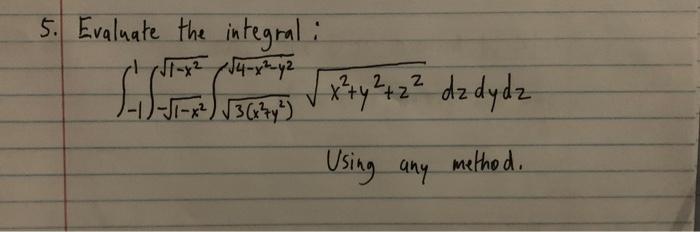 5. Evaluate the integral :
∫_{-1}^{1} ∫_{-√(1-x²)}^{√(1-x²)} ∫_{√(3(x²+y²))}^{√(4-x²-y²)} √(x²+y²+z²) dz dy dz
Using any method.